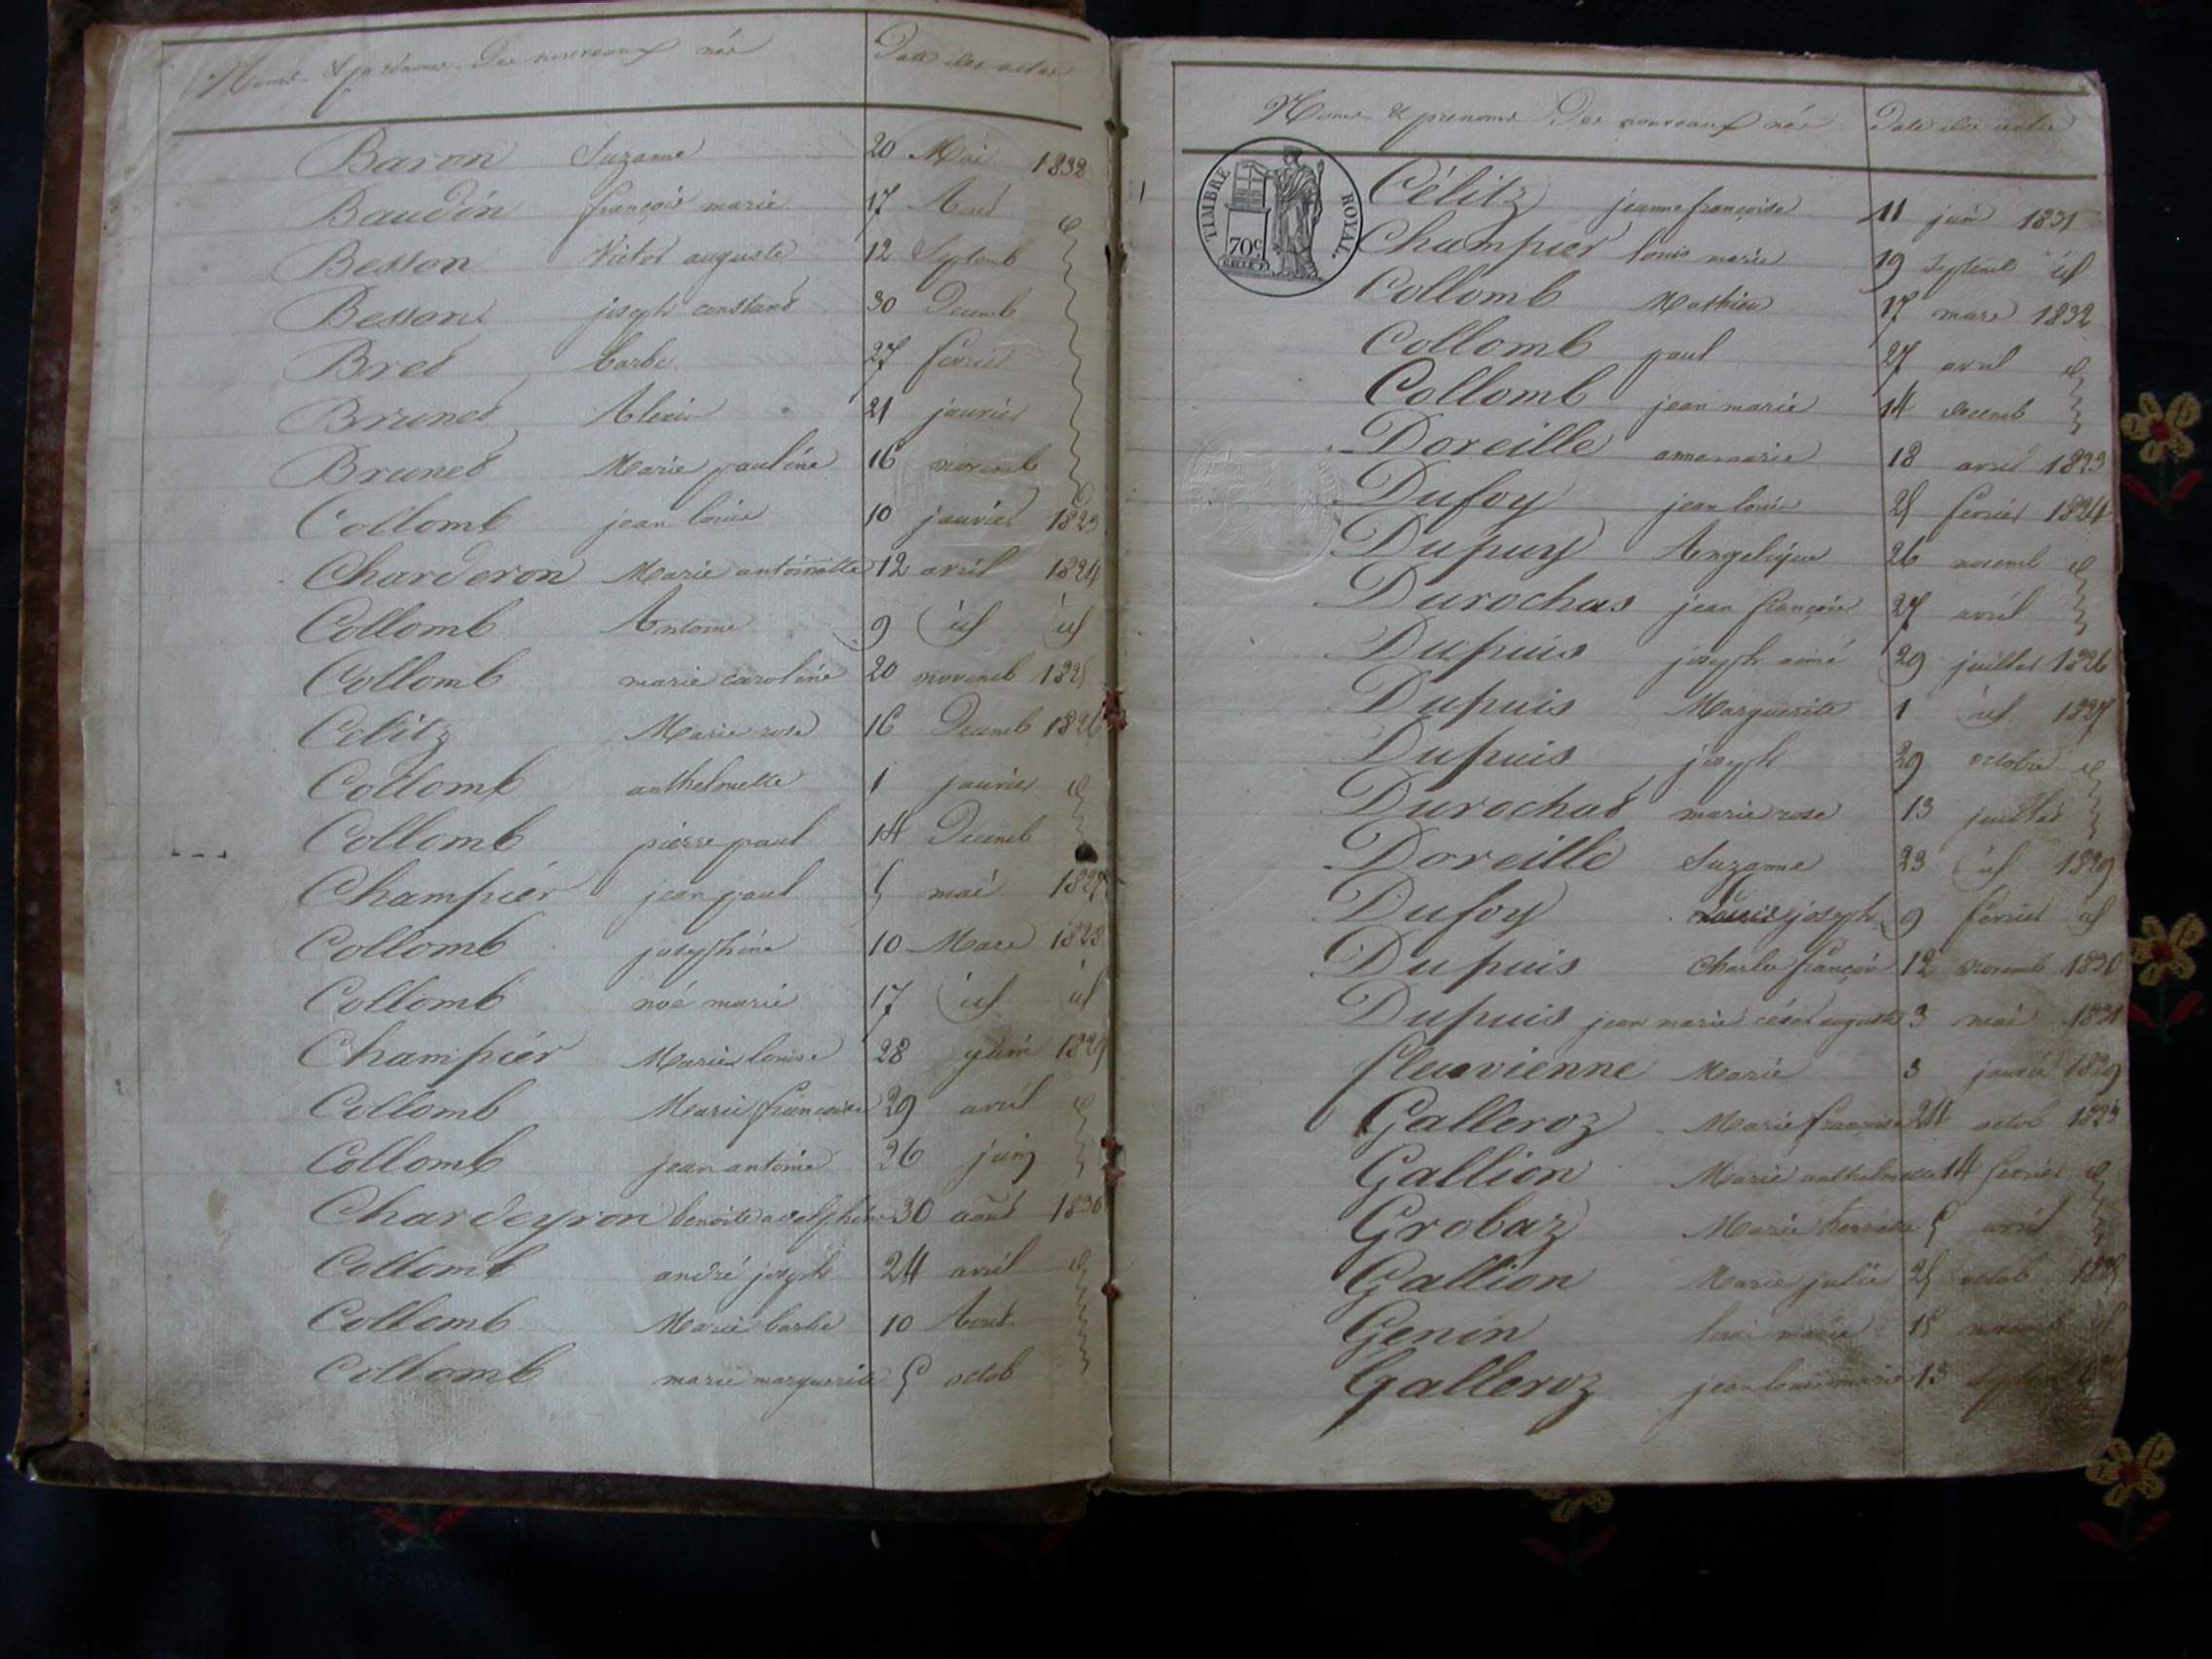 Noms & prénoms Des nouveaux nés Date des actes
Baron Suzanne 20 Mai 1832
Baudin françois marie 17 Aout id
Besson Victor auguste 12 Septemb
Besson joseph constant 30 Decemb
Bret barbe 27 fevrier
Brunet Alexis 21 janvier
Brunet Marie pauline 16 novemb
Collomb jean louis 10 janvier 1823
Charderon Marie antoinette 12 avril 1824
Collomb Antoine 9 id id
Collomb marie caroline 20 novemb 1825
Celitz Marie rose 16 Decemb 1826
Collomb anthelmette 1 janvier id
Collomb pierre paul 14 Decemb
Champier jean paul 5 mai 1827
Collomb josephine 10 Mars 1828
Collomb noé marie 17 id id
Champier Marie louise 28 1829
Collomb Marie françoise 29 avril id
Collomb jean antoine 26 juin
Chardeyron benoite adolphine 30 aout 1830
Collomb andré joseph 24 avril id
Collomb Marie barbe 10 Aout
Collomb marie marguerite 5 octob
Noms & prenoms Des nouveaux nés Date des actes
TIMBRE ROYAL
70c
Célitz jeanne françoise 11 juin 1831
Champier louis marie 19 Septemb id
Collomb Mathieu 17 mars 1832
Collomb paul 27 avril id
Collomb jean marie 14 decemb
Doreille anne marie 18 avril 1823
Dufoy jean louis 25 fevrier 1824
Dupuy Angelique 26 novemb id
Durochat jean françois 27 avril
Dupuis joseph aimé 29 juillet 1826
Dupuis Marguerite 1 id 1827
Dupuis joseph 29 octobre id
Durochat marie rose 13 juillet
Doreille Suzanne 23 id 1829
Dufoy joseph 9 fevrier id
Dupuis Charles françois 12 novemb 1830
Dupuis jean marie césar auguste 3 mai 1831
fleuvienne Marie 3 janvier 1829
Galleroz Marie françoise 24 octob 1823
Gallion Marie anthelmette 14 fevrier id
Grobaz Marie 5 avril
Gallion Marie julie 25 octob 1825
Genin louis marie 15 novemb id
Galleroz jean louis marie 13 Septem